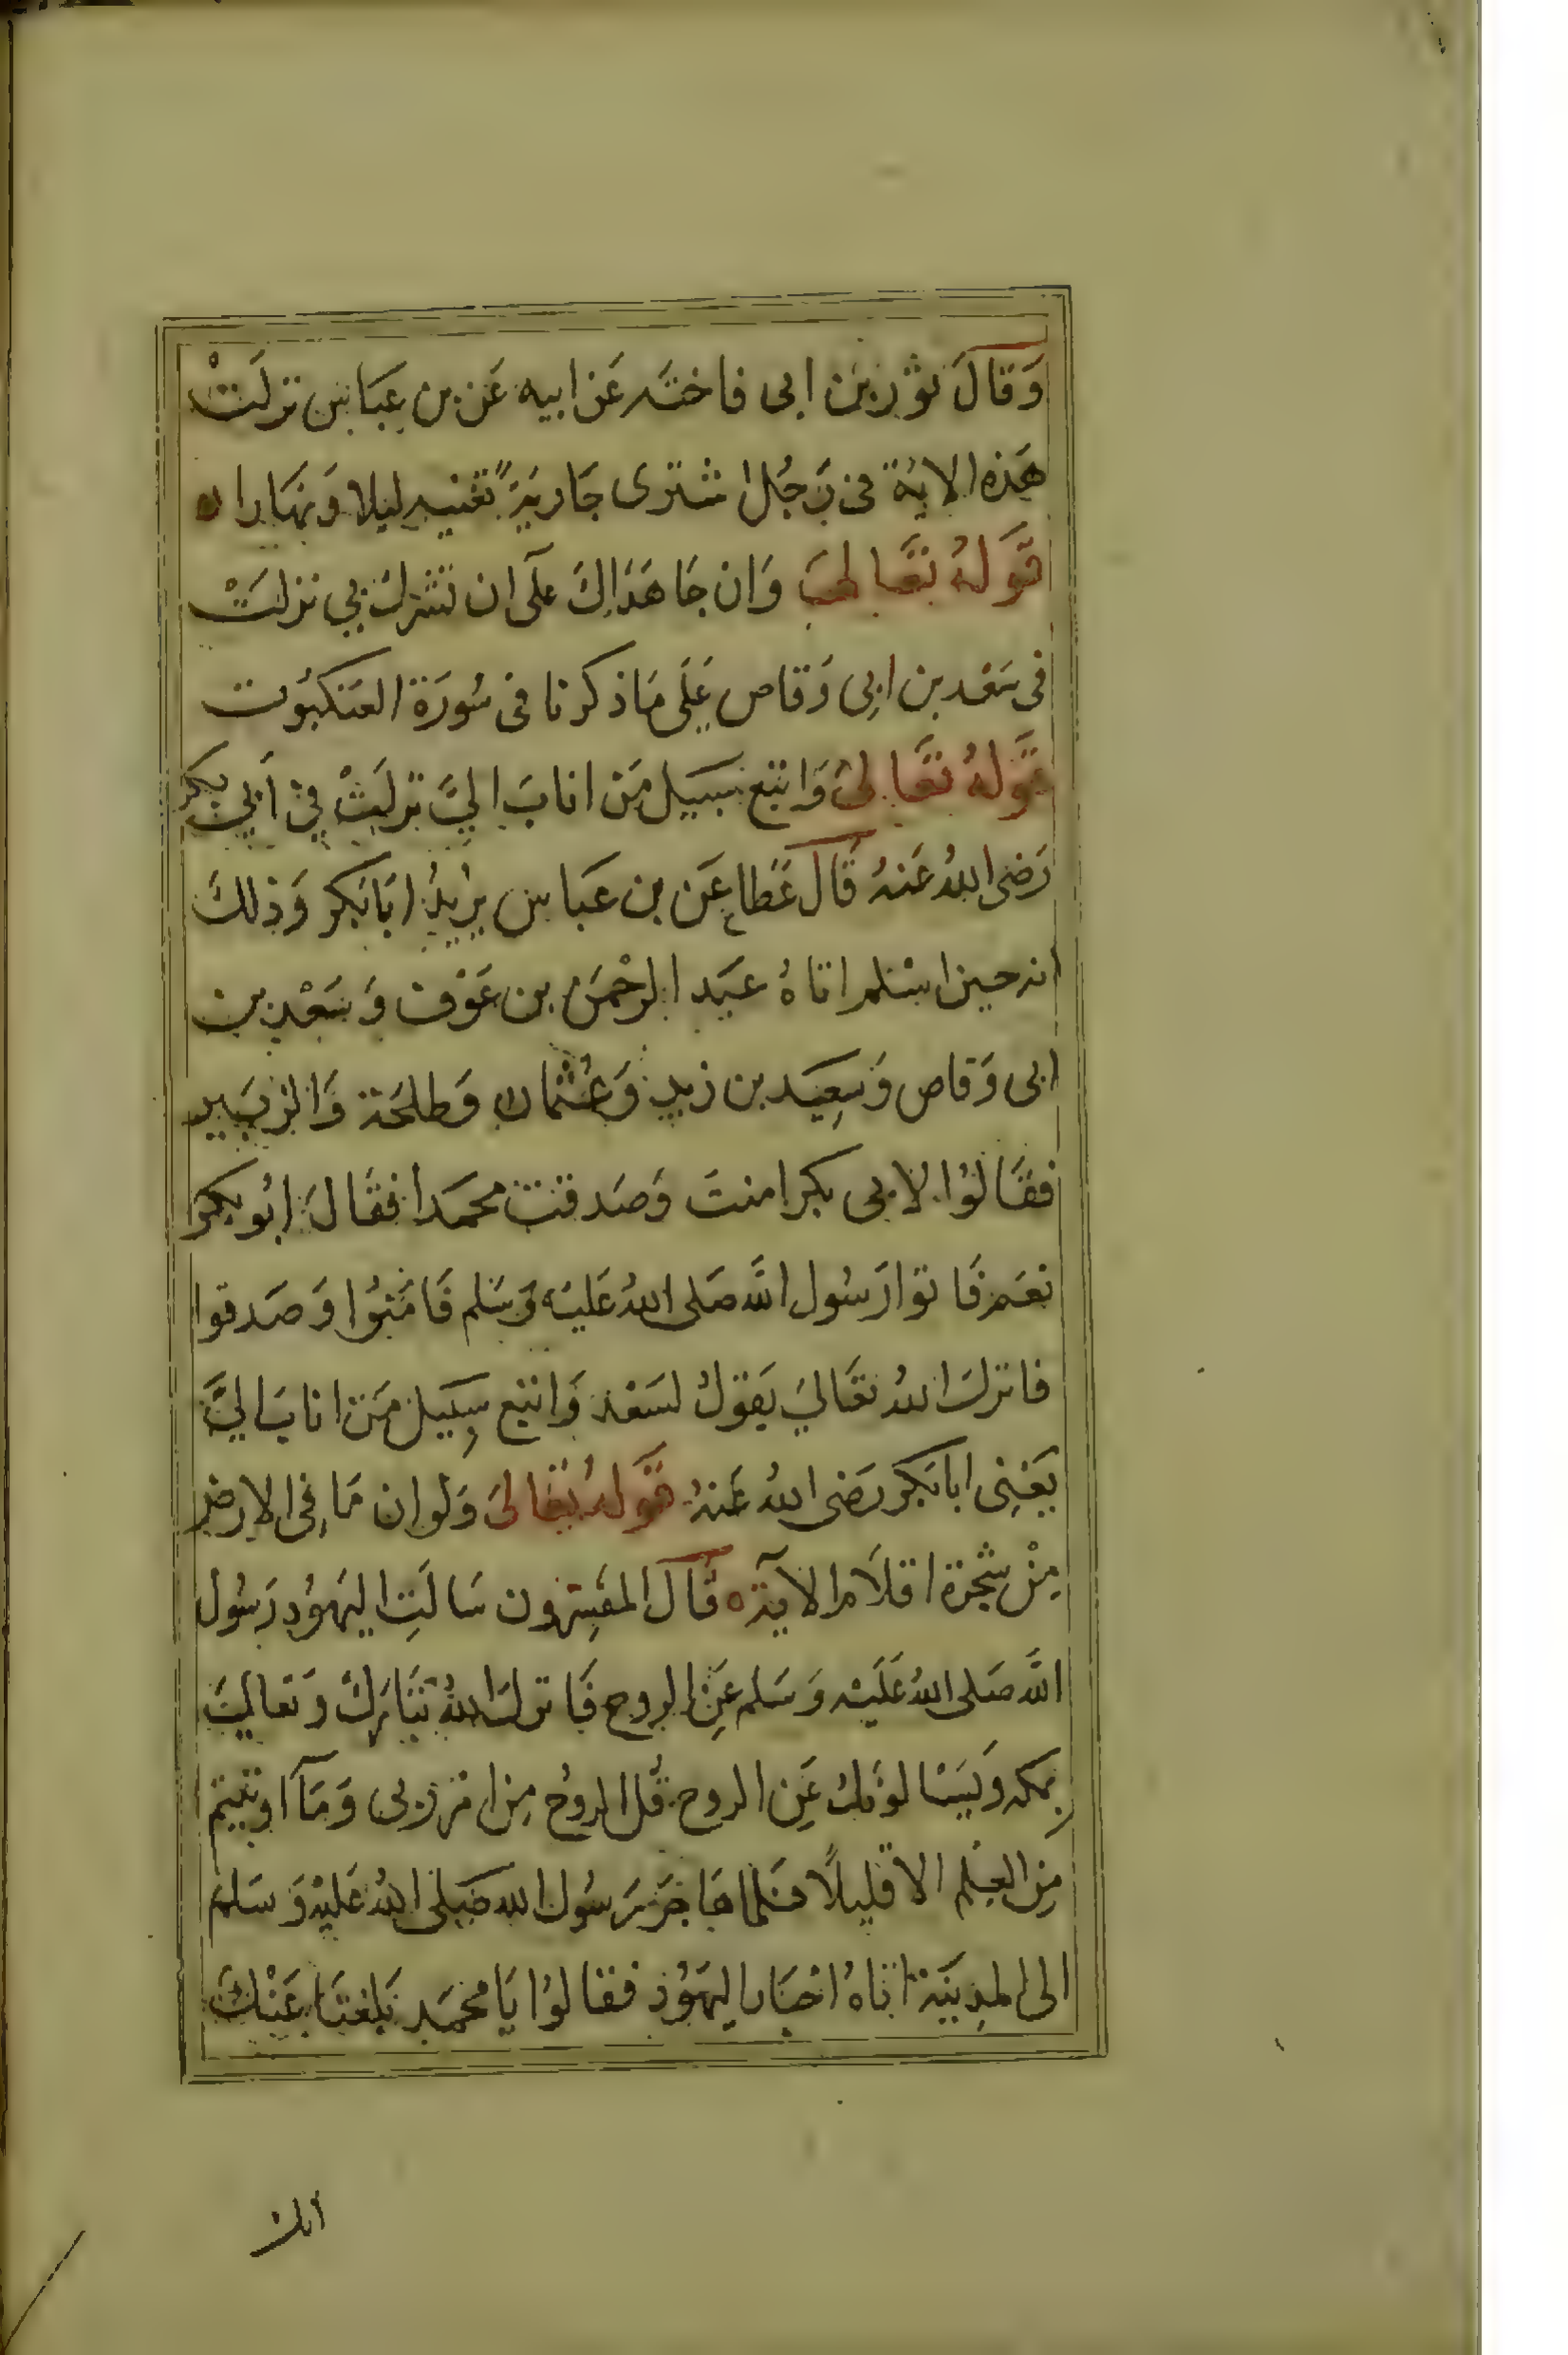 وَقَالَ ثوْر بن ابى فاختَه عَن ابيه عَن بن عِبَاس نزلَتْ
هَذه الايُة فى رَجُل اشترى جَاريَةً تغنيه ليلا وَنهَارا ه
قَوَلهُ تعَالىَ وَان جَاهَدَاكَ عَلَى ان تشرك بي نزلَتْ
فى سَعْد بن ابِى وَقاص عَلَى مَا ذكرنا فى سُورَة العَنكبُوت
قَولهُ تعَالىَ وَاتبع سبيَل مَن انابَ اليَّ نزلَتْ فِي اَبي بكر
رَضى اللهُ عَنهُ قَالَ عَطاء عَن بن عَباس يُريُد ابَا بَكر وَذلكَ
انه حين اسْلم اتاهُ عبَد الرحْمَن بن عَوْف وَسَعْد بن
ابى وَقاص وَسِعيَد بن زيد وَعُثْمان وَطلحَة وَالزبَير
فقَالوُا لابى بكر امنتَ وَصَدقتَ محمَدا فقَالَ ابُو بكر
نعَم فَاتوا رَسُول اللَّه صَلى اللهُ عَليْه وَسَلم فَامَنوُا وَصَدقوا
فانزلَ اللهُ تعَالىَ يَقولُ لسَعْد وَاتبع سِبَيل مَن انابَ اليَّ
يَعْنِى ابا بَكر رَضى اللهُ عَنهُ قَوَلهُ تعَالىَ وَلو ان مَا فِى الارض
مِنْ شجَرة اقلَام الآية ه قَالَ المفَسِرون سَالَتِ اليَهُود رَسُول
اللَّه صَلى اللهُ عَلَيْه وَسَلم عَن الروح فَانزلَ اللهُ تبَارَكَ وَتعَالىَ
بمكه وَيَسْالوُنكَ عَن الروح قُل الروُح مِن امْر ربى وَمَآ اوتيتم
مِن العِلم الا قليلاً فَلما هَاجَر رَسُول الله صَلى اللهُ عَليْه وَسَلم
الى المدِينَة اتاهُ احْبَار اليَهوُد فقَالوُا يَا محمَد بَلغنَا عَنْكَ
انك